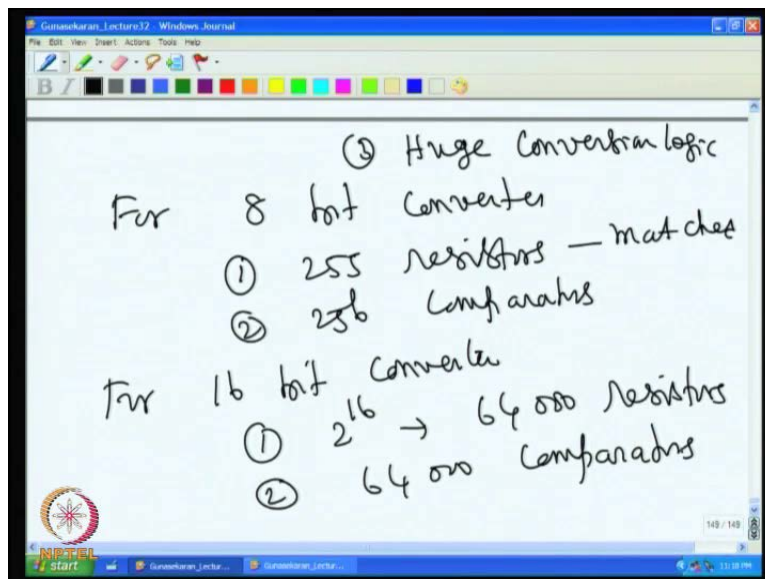 Gunasekaran_Lecture32 - Windows Journal
File Edit View Insert Actions Tools Help
B I
③ Huge Conversion logic
For 8 bit Converter
① 255 resistors — matches
② 256 Comparators
For 16 bit Converter
① 2^16 → 64 000 resistors
② 64 000 Comparators
149 / 149
NPTEL
start Gunasekaran_Lectur... Gunasekaran_Lectur... 11:18 PM